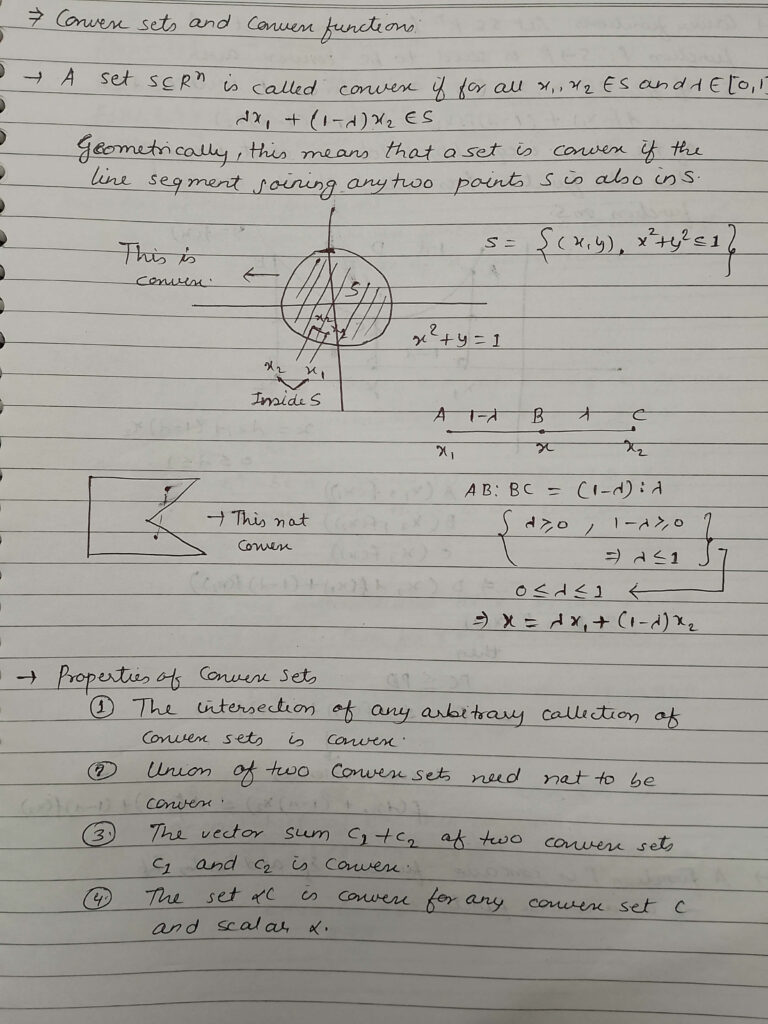 ⇒ Convex sets and convex functions:
→ A set S⊆Rⁿ is called convex if for all x₁, x₂ ∈ S and λ ∈ [0,1]
λx₁ + (1-λ)x₂ ∈ S
Geometrically, this means that a set is convex if the
line segment joining any two points S is also in S.
S = {(x,y), x²+y² ≤ 1}
This is
convex.
←
S
x₂ x₁
x²+y = 1
x₂ x₁
Inside S
A 1-λ B λ C
x₁ x x₂
AB : BC = (1-λ) : λ
→ This not
convex
{ λ ≥ 0 , 1-λ ≥ 0
⇒ λ ≤ 1 }
0 ≤ λ ≤ 1 ←
⇒ x = λx₁ + (1-λ)x₂
→ Properties of Convex sets
① The intersection of any arbitrary collection of
convex sets is convex.
② Union of two convex sets need not to be
convex.
③ The vector sum C₁ + C₂ of two convex sets
C₁ and C₂ is convex.
④ The set αC is convex for any convex set C
and scalar α.